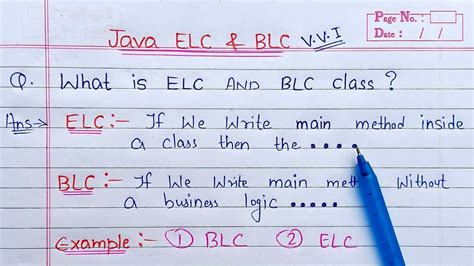 Java ELC & BLC V.V.I
Page No. :
Date : / /
Q. What is ELC AND BLC class ?
Ans→ ELC:- If We Write main method inside
a class then the .....
BLC:- If We Write main met Without
a business logic .....
Example:- ① BLC ② ELC